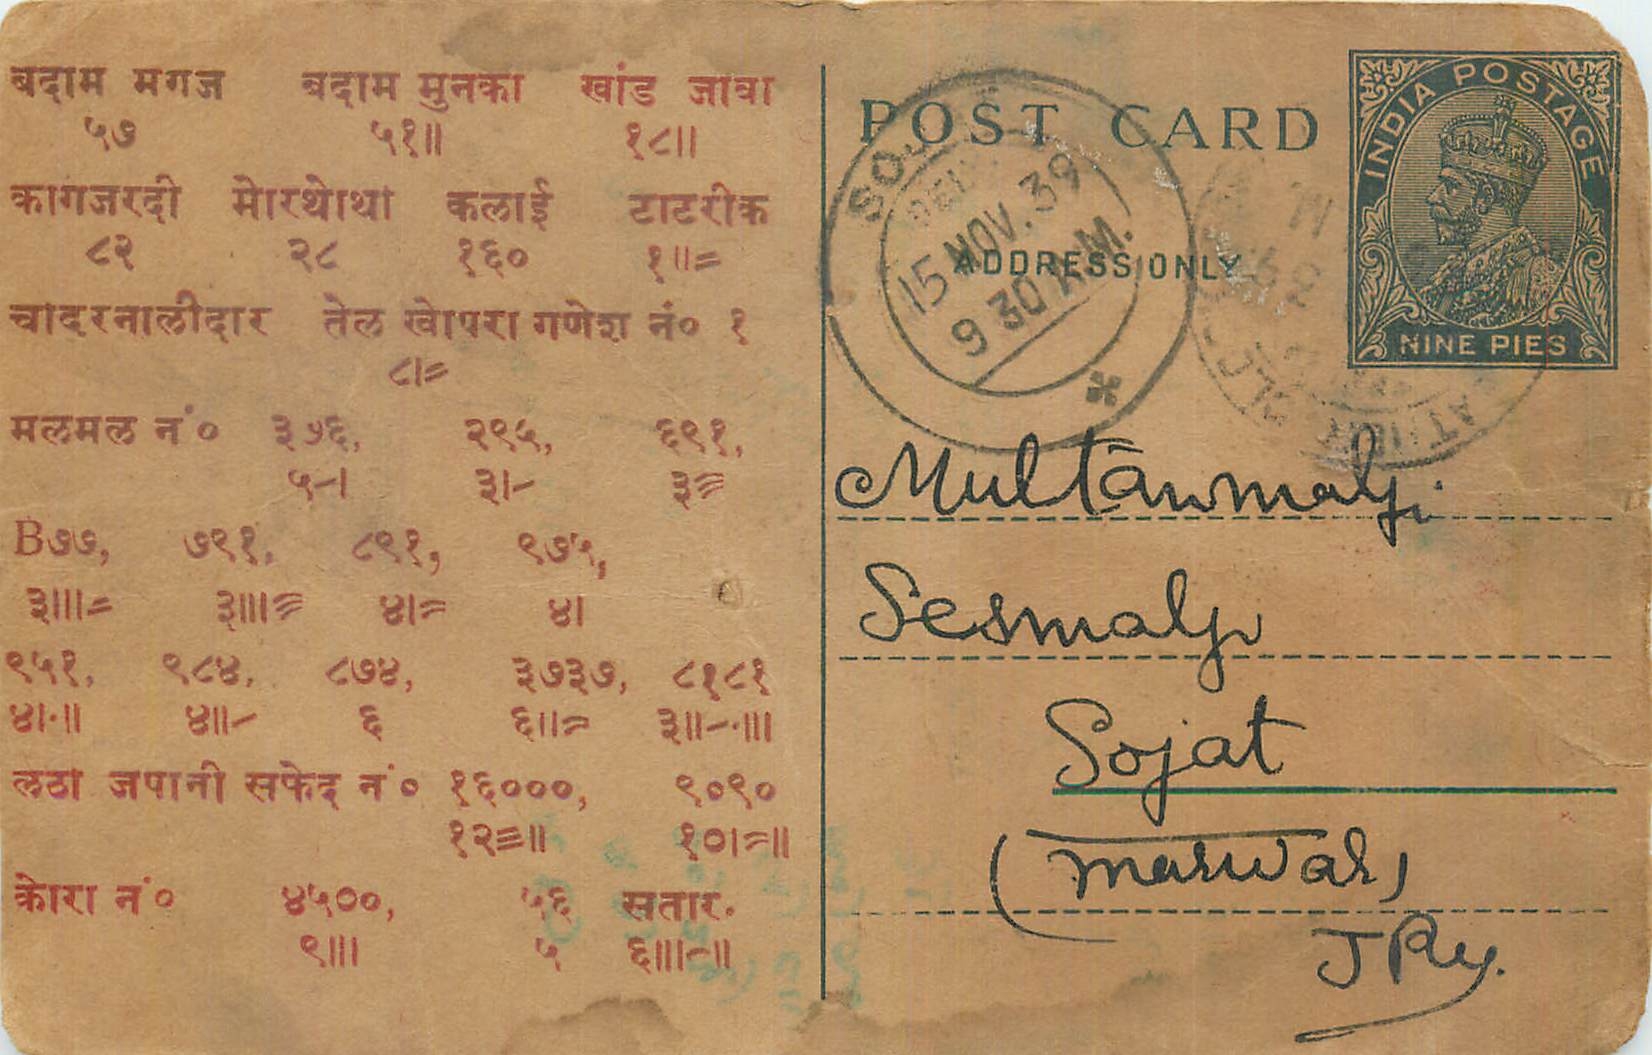 बदाम मगज बदाम मुनका खांड जावा
५७ ५१॥ १८॥
कागजरदी मोरथोथा कलाई टाटरीक
८२ २८ १६० १॥=
चादरनालीदार तेल खोपरा गणेश नं० १
८।=
मलमल नं० ३७६, २९५, ६९१,
५-। ३।- ३≡
B७७, ७९१, ८९१, ९७५,
३॥।= ३॥।≡ ४।= ४।
९५१, ९८४, ८७४, ३७३७, ८१८१
४।·॥ ४॥- ६ ६॥= ३॥-·॥।
लठा जपानी सफेद नं० १६०००, ९०९०
१२≡॥ १०।=॥
कोरा नं० ४५००, ५६ सतार.
९॥। ५ ६॥।-॥
POST CARD
ADDRESS ONLY
INDIA POSTAGE
NINE PIES
15 NOV. 39
9 30 A.M.
Multanmalji
Sesmalji
Sojat
(Marwar)
J Ry.